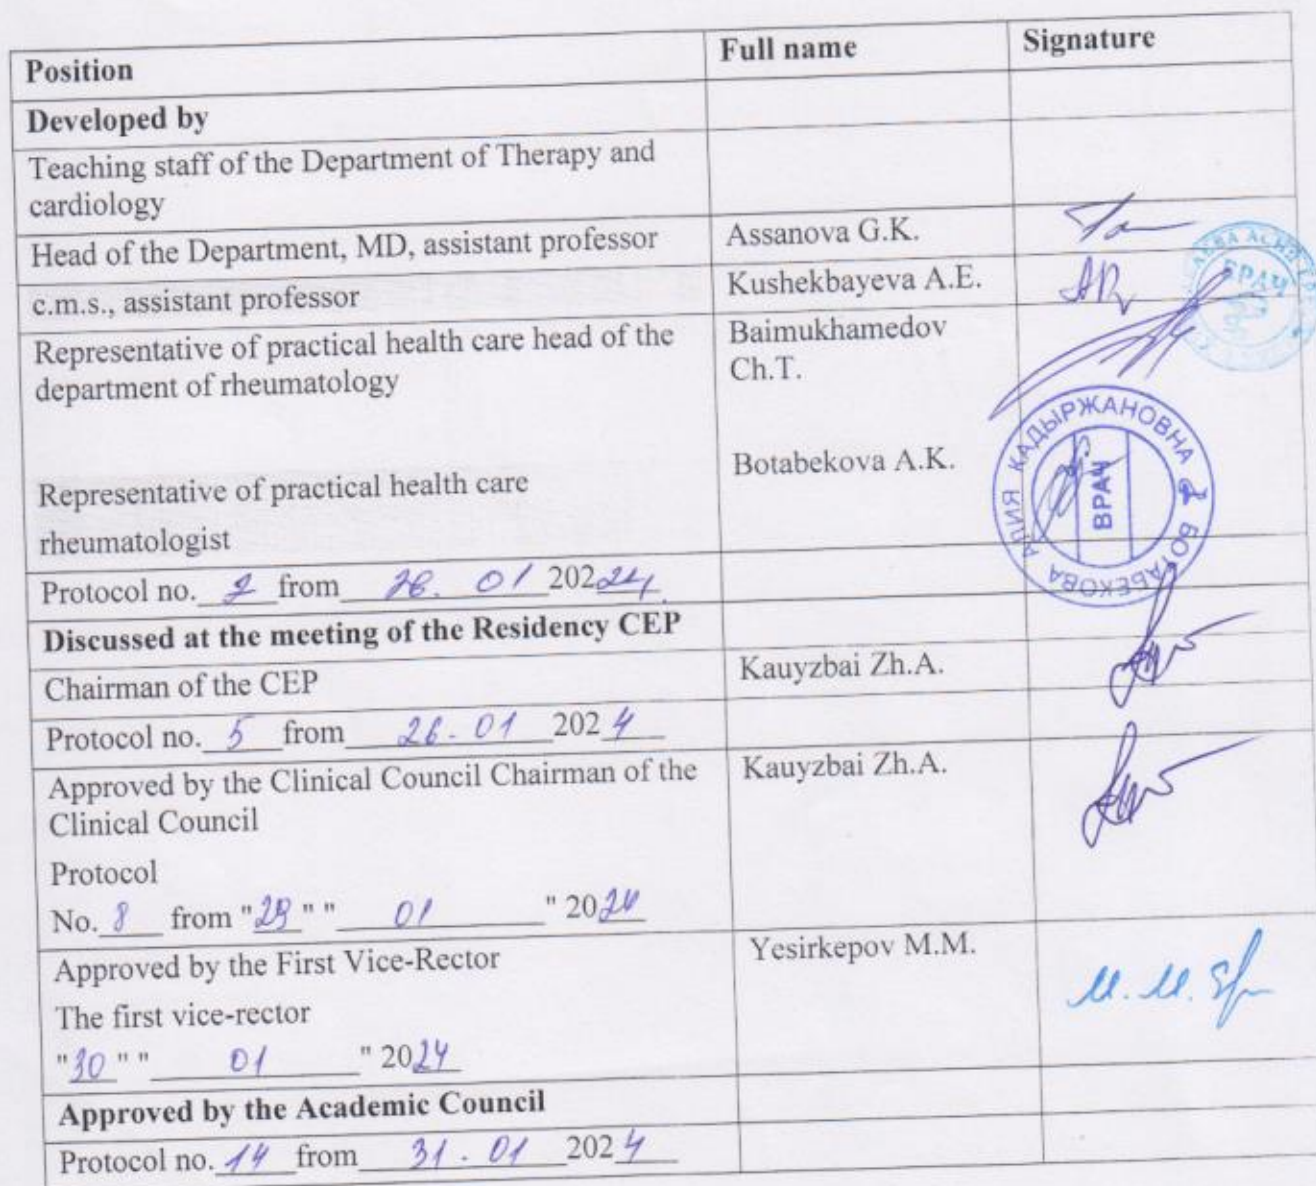 Position Full name Signature
Developed by
Teaching staff of the Department of Therapy and
cardiology
Head of the Department, MD, assistant professor Assanova G.K.
c.m.s., assistant professor Kushekbayeva A.E.
Representative of practical health care head of the Baimukhamedov
department of rheumatology Ch.T.
Representative of practical health care Botabekova A.K.
rheumatologist
ВРАЧ
БОТАБЕКОВА АЛИЯ КАДЫРЖАНОВНА
ВРАЧ
Protocol no. from 01 202
Discussed at the meeting of the Residency CEP
Chairman of the CEP Kauyzbai Zh.A.
Protocol no. 5 from 26.01 2024
Approved by the Clinical Council Chairman of the Kauyzbai Zh.A.
Clinical Council
Protocol
No. 8 from "29" " 01 " 2024
Approved by the First Vice-Rector Yesirkepov M.M.
The first vice-rector
"30" " 01 " 2024
Approved by the Academic Council
Protocol no. 14 from 31.01 2024